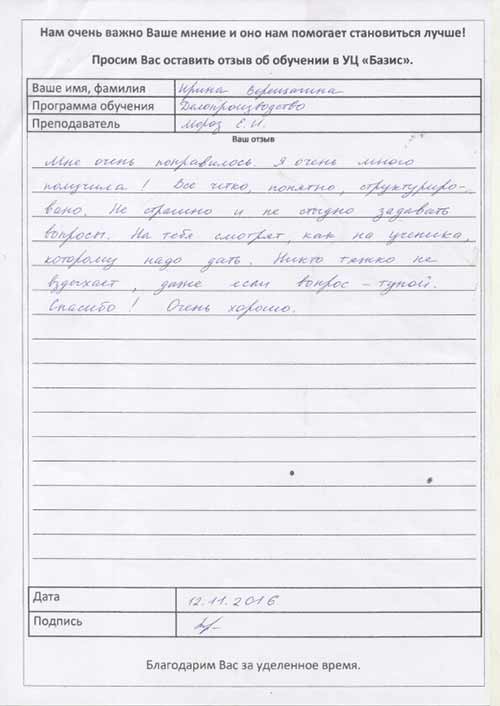 Нам очень важно Ваше мнение и оно нам помогает становиться лучше!
Просим Вас оставить отзыв об обучении в УЦ «Базис».
Ваше имя, фамилия Ирина Верещагина
Программа обучения Делопроизводство
Преподаватель Мороз Е.И.
Ваш отзыв
Мне очень понравилось. Я очень много
получила! Все четко, понятно, структуриро-
вано. Не страшно и не стыдно задавать
вопросы. На тебя смотрят, как на ученика,
которому надо дать. Никто тяжко не
вздыхает, даже если вопрос - тупой.
Спасибо! Очень хорошо.
Дата 12.11.2016
Подпись
Благодарим Вас за уделенное время.